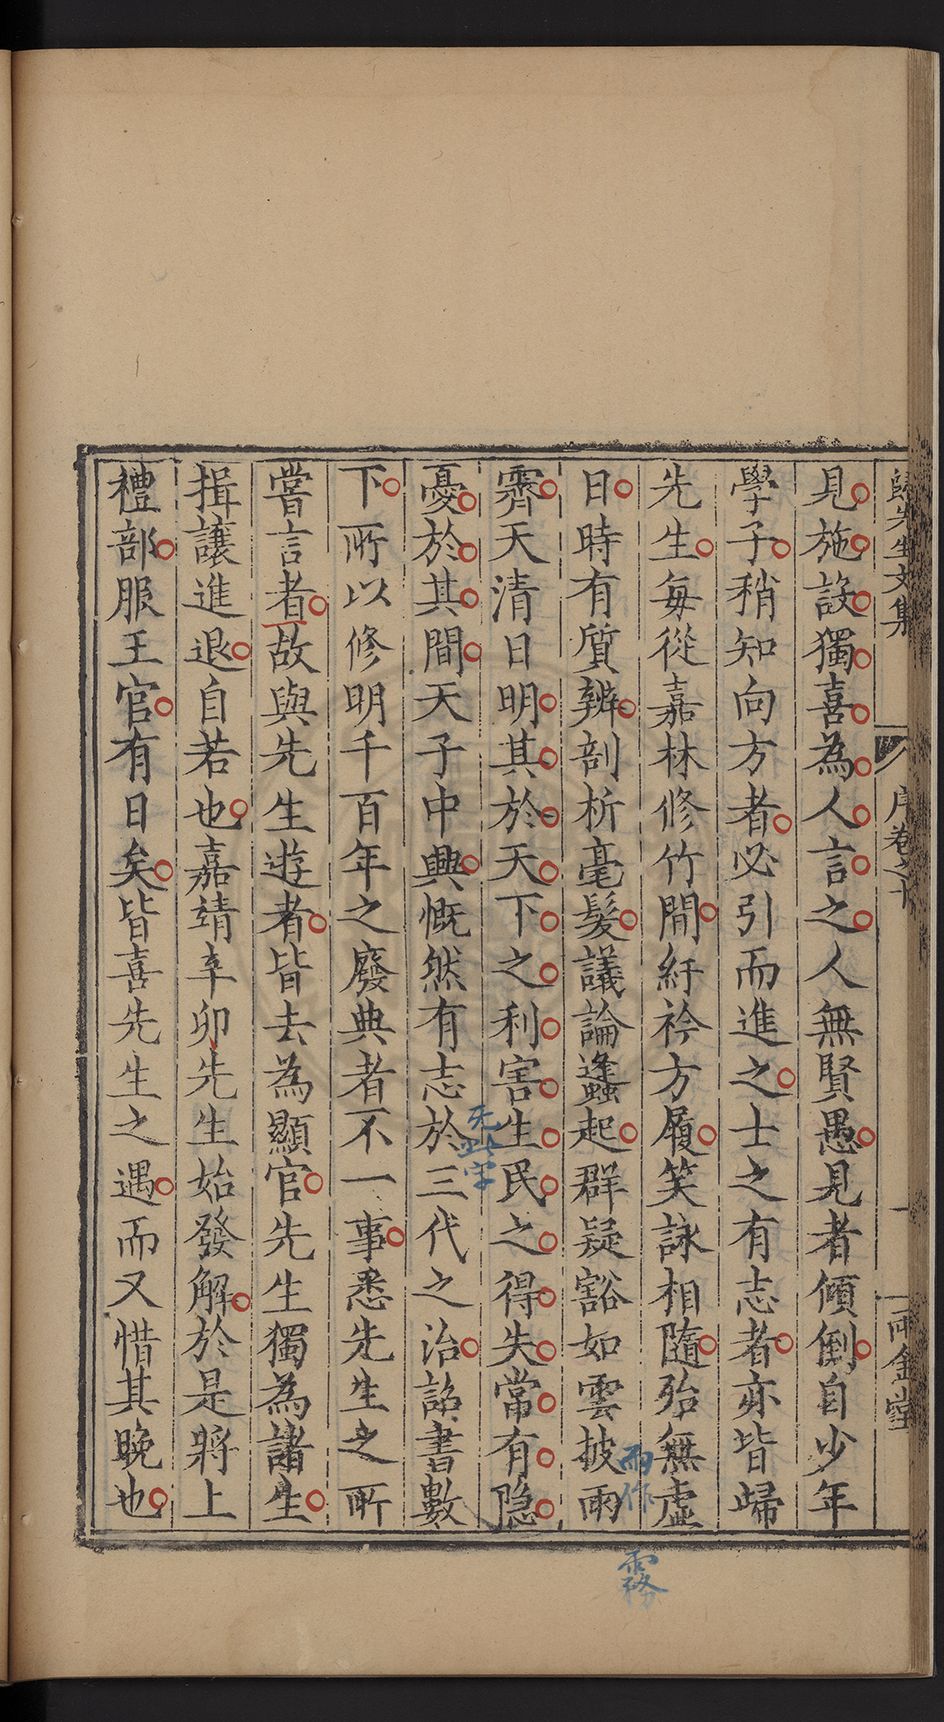 歸先生文集
序卷之十
一
雨金堂
見施設獨喜為人言之人無賢愚見者傾倒自少年
學子稍知向方者必引而進之士之有志者亦皆歸
先生每從嘉林修竹間紆衿方履笑詠相隨殆無虛
日時有質辨剖析毫髮議論蠭起群疑豁如雲披雨
霽天清日明其於天下之利害生民之得失常有隐
憂於其間天子中興慨然有志於三代之治詔書數
下所以修明千百年之廢典者不一事悉先生之所
嘗言者故與先生遊者皆去為顯官先生獨為諸生
揖讓進退自若也嘉靖辛卯先生始發解於是將上
禮部服王官有日矣皆喜先生之遇而又惜其晚也
无此字
雨作
霧